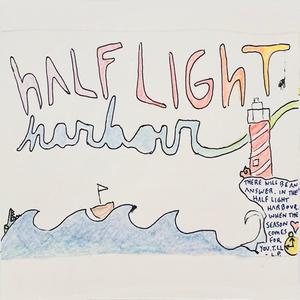 HALF LIGHT
harbour
THERE WILL BE AN
ANSWER, IN THE
HALF LIGHT
HARBOUR
WHEN THE
SEASON
COMES
FOR
YOU.
L.R.